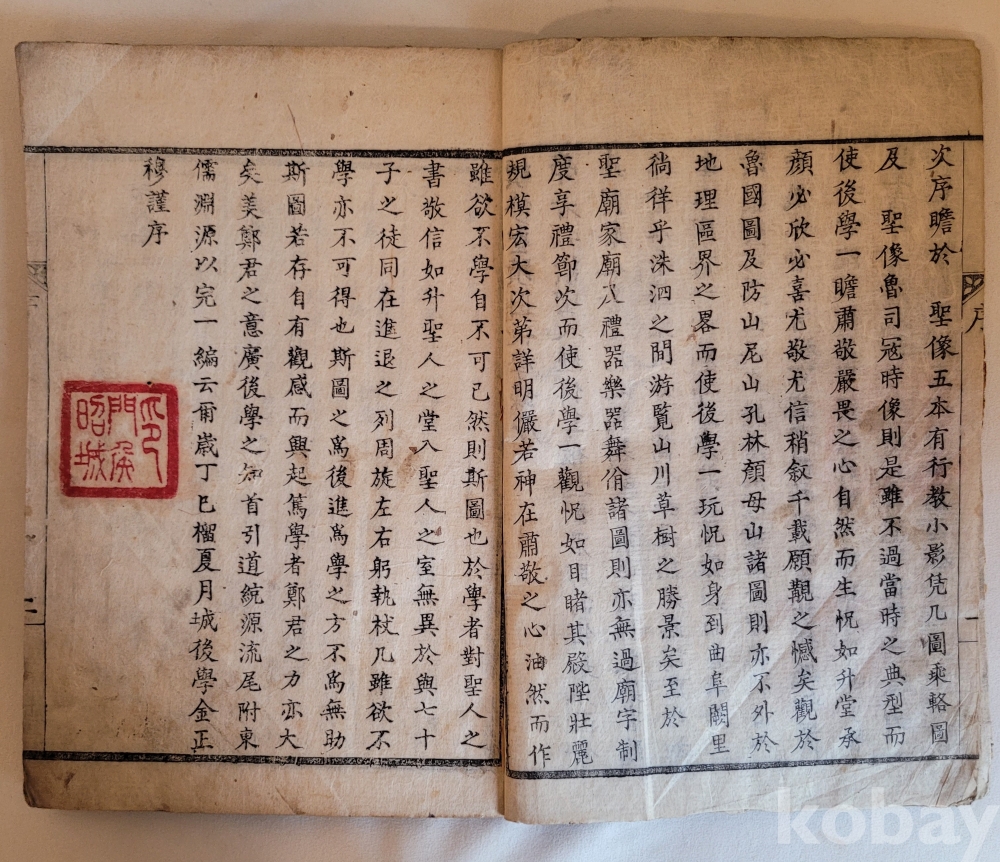 次序瞻於 聖像五本有行教小影凭几圖乘輅圖
及 聖像魯司寇時像則是雖不過當時之典型而
使後學一瞻肅敬嚴畏之心自然而生怳如升堂承
顔必欣必喜尤敬尤信稍叙千載願覿之憾矣觀於
魯國圖及防山尼山孔林顔母山諸圖則亦不外於
地理區界之畧而使後學一玩怳如身到曲阜闕里
徜徉乎洙泗之間游覧山川草樹之勝景矣至於
聖廟家廟入禮器樂器舞佾諸圖則亦無過廟宇制
度享禮節次而使後學一觀怳如目睹其殿陛壯麗
規模宏大次第詳明儼若神在肅敬之心油然而作
雖欲不學自不可已然則斯圖也於學者對聖人之
書敬信如升聖人之堂入聖人之室無異於與七十
子之徒同在進退之列周旋左右躬執杖几雖欲不
學亦不可得也斯圖之爲後進爲學之方不爲無助
斯圖若存自有觀感而興起篤學者鄭君之力亦大
矣美鄭君之意廣後學之知首引道統源流尾附東
儒淵源以完一編云甭歲丁巳榴夏月城後學金正
穆謹序
序
一
序
二
門侯印
昭城
kobay